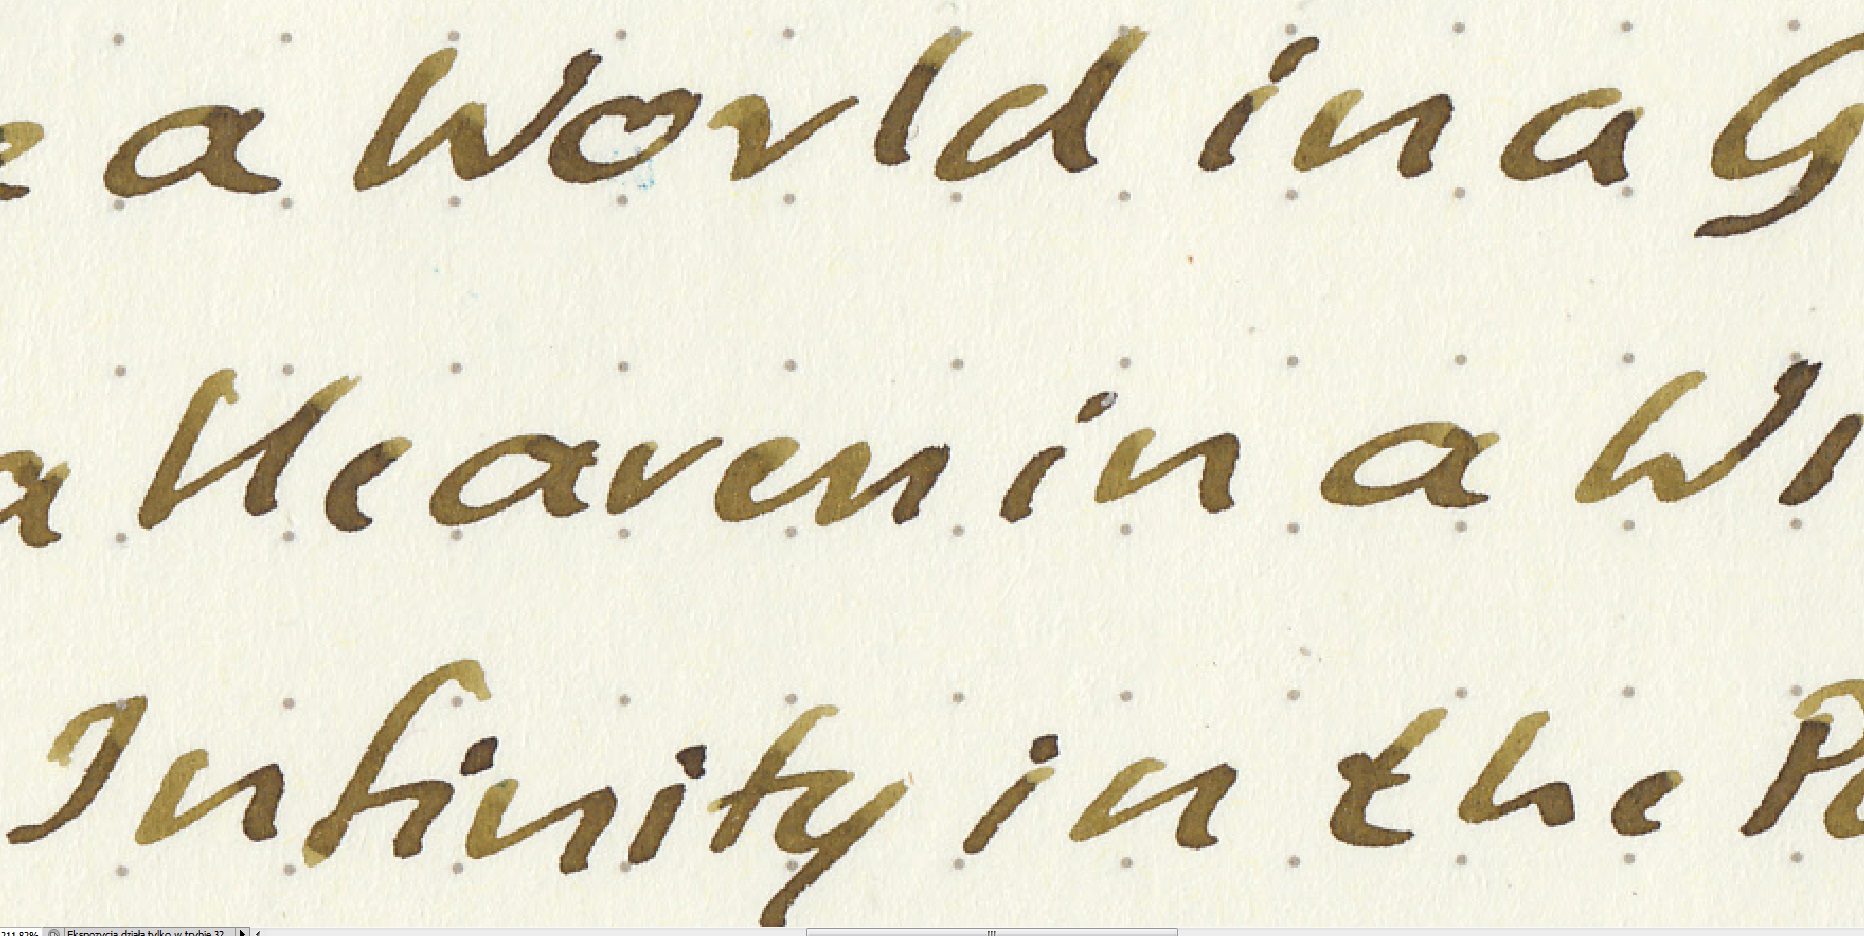 a World in a G
a Heaven in a Wi
Infinity in the Pa
211,82% Ekspozycja działa tylko w trybie 32